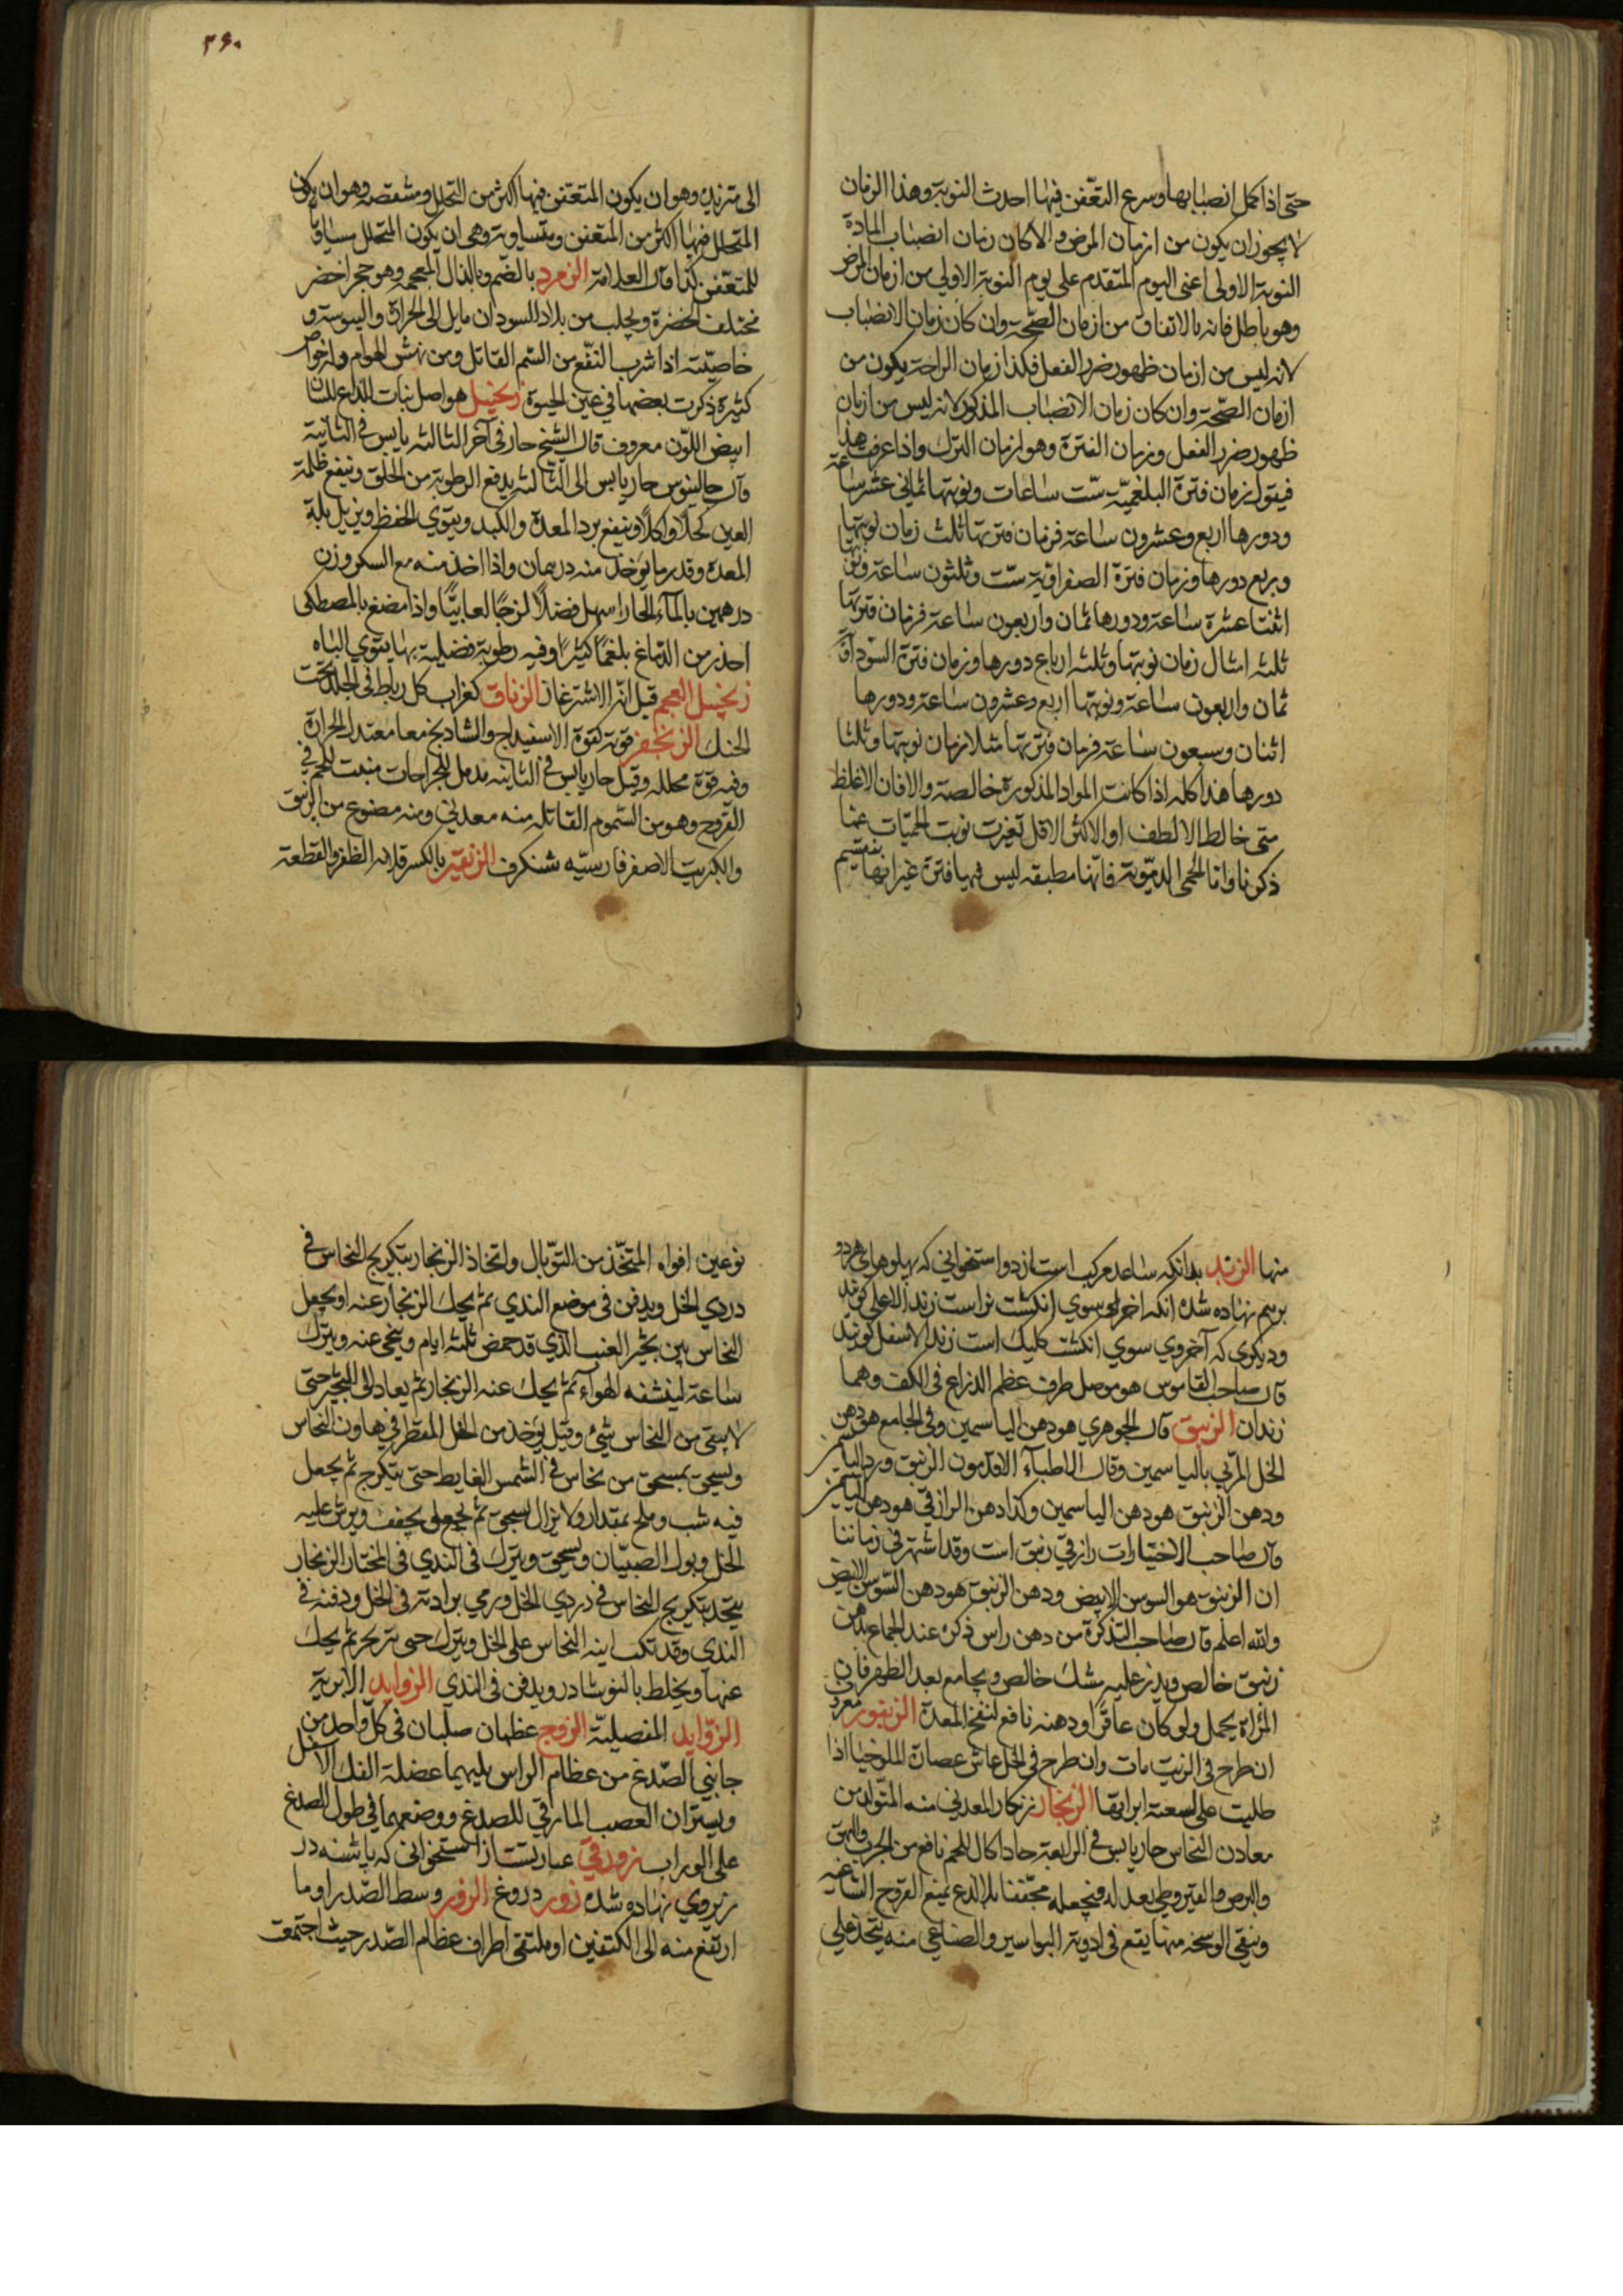 حتى اذا كمل انصبابها وسرع التعفن فيها احدث النوبة وهذا الزمان
لا يجوز ان يكون من ازمان المرض والا كان زمان انصباب المادة
النوبة الاولى اعنى اليوم المتقدم على يوم النوبة الاولى من ازمان المرض
وهو باطل فانه بالاتفاق من ازمان الصحة وان كان زمان الانصباب
لانه ليس من ازمان ظهور ضرر الفعل فكذا زمان الراحة يكون من
ازمان الصحة وان كان زمان الانصباب المذكور لانه ليس من ازمان
ظهور ضرر الفعل وزمان الفترة وهو زمان الترك واذا عرفت هذا
فيقول زمان فترة البلغمية ست ساعات ونوبتها ثمانى عشر ساعة
ودورها اربع وعشرون ساعة فزمان فترتها ثلث زمان نوبتها
وربع دورها وزمان فترة الصفراوية ست وثلثون ساعة ونوبتها
اثنتا عشرة ساعة ودورها ثمان واربعون ساعة فزمان فترتها
ثلثه امثال زمان نوبتها وثلثه ارباع دورها وزمان فترة السوداوية
ثمان واربعون ساعة ونوبتها اربع وعشرون ساعة ودورها
اثنان وسبعون ساعة فزمان فترتها مثلا زمان نوبتها وثلثا
دورها هذا كله اذا كانت المواد المذكورة خالصة والا فان الاغلظ
متى خالط الالطف او الاكثر الاقل تغيرت نوبت الحميات عما
ذكرنا واما الحمى الدموية فانها مطبقه ليس فيها فترة غير انها ينقسم
٣٦٠
الى متزنده وهو ان يكون المتعفن فيها اكثر من التحلل ومتنقصه وهو ان يكون
المتحلل فيها اكثر من المتعفن ومتساوية وهى ان يكون المتحلل مساويا
للمتعفن كذا قال العلامة الزمرد بالضم وبالذال المعجمه وهو حجر اخضر
مختلف الخضرة ويجلب من بلاد السودان مايل الى الحرارة واليبوسة و
خاصيته اذا شرب النفع من السم القاتل ومن نهش الهوام وله خواص
كثيرة ذكرت بعضها فى عين الحيوة زنجبيل هو اصل نبات لذاع للسان
ابيض اللون معروف قال الشيخ حار فى آخر الثالثه يابس فى الثانية
وقال جالينوس حار يابس الى الثالثه يدفع الرطوبة من الحلق وينفع ظلمة
العين كحلا واكلا وينفع برد المعدة والكبد ويقوي الحفظ ويزيل بلة
المعدة وقدر ما يؤخذ منه درهمان واذا اخذ منه مع السكر وزن
درهمين بالماء الحار اسهل فضلا لزجا لعابيا واذا مضغ بالمصطكى
احدر من الدماغ بلغما كثيرا وفيه رطوبة فضلية بها يقوي الباه
زنجبيل العجم قيل انه الاشترغاز الزناق كغراب كل رباط فى الجلد تحت
الحنك الزنجفر قوته كقوة الاسفيداج والشاذنج معا معتدل الحرارة
وفيه قوة محلله وقيل حار يابس فى الثانيه مدمل للجراحات منبت للحم فى
القروح وهو من السموم القاتلة منه معدنى ومنه مصنوع من الزنبق
والكبريت الاصفر فارسيه شنكرف الزنقير بالكسر قلامه الظفر والقطعة
منها الزند بدانكه ساعد مركب است از دو استخوانى كه پهلوهاى هر دو
برهم نهاده شده انكه اخر او سوي انكشت نر است زند الاعلى كويند
وديكرى كه آخر وي سوي انكشت كليك است زند الاسفل كويند
قال صاحب القاموس هو موصل طرف عظم الذراع فى الكف وهما
زندان الزنبق قال الجوهري هو دهن الياسمين وفى الجامع هو دهن
الخل المربى بالياسمين وقال الاطباء الاقدمون الزنبق ورد الياسمين
ودهن الزنبق هو دهن الياسمين وكذا دهن الرازقى هو دهن الياسمين
قال صاحب الاختيارات رازقى زنبق است وقد اشتهر فى زماننا
ان الزنبق هو السوسن الابيض ودهن الزنبق هو دهن السوسن الابيض
والله اعلم قال صاحب التذكرة من دهن راس ذكره عند الجماع بدهن
زنبق خالص ويذر عليه مشك خالص ويجامع بعد الطهر فان
المراة يحمل ولو كان عاقرا ودهنه نافع لنفخ المعدة الزنبور معروف
ان طرح فى الزيت مات وان طرح فى الخل عاش عصارة الملوخيا اذا
طليت على لسعته ابرابها الزنجار زنكار المعدنى منه المتولد من
معادن النحاس حار يابس فى الرابعة حاد اكال للحم نافع من الجرب والبهق
والبرص والقيروطى يعدله فيجعله مجففا بلا لذع يمنع القروح الساعيه
وينقى الوسخه منها يقع فى ادوية البواسير والصناعى منه يتخذ على
نوعين افواه المتخذ من التوبال واتخاذ الزنجار بتكريج النحاس فى
دردي الخل ويدفن فى موضع الندي ثم يحك الزنجار عنه او يجعل
النحاس بين ثجير العنب الذي قد حمض ثلثه ايام وينحى عنه ويترك
ساعة لينشفه الهواء ثم يحك عنه الزنجار ثم يعاد الى الثجير حتى
لا يبقى من النحاس شئ وقيل يؤخذ من الخل المقطر فى هاون النحاس
ويسحق بمسحق من نحاس فى الشمس الغايط حتى يتكرج ثم يجعل
فيه شب وملح بمقدار ولا يزال يسحق ثم يجمع على يجفف ويرش عليه
الخل وبول الصبيان ويسحق ويترك فى الندي فى المختار الزنجار
يتخذ بتكريج النحاس فى دردي الخل ورمي برادته فى الخل ودفنه فى
الندي وقد تكب اينه النحاس على الخل ويترك حتى تزنجر ثم يحك
عنها ويخلط بالنوشادر ويدفن فى الندي الزوايد الابرية
الزوايد المفصلية الزوج عظمان صلبان فى كل واحد من
جانبي الصدغ من عظام الراس يليهما عضلة الفك الاسفل
ويستران العصب المار فى للصدغ ووضعهما فى طول الصدغ
على الوراب زورقى عبارتست از استخوانى كه پاشنه در
زيروي نهاده شده زور دروغ الزور وسط الصدر او ما
ارتفع منه الى الكتفين او ملتقى اطراف عظام الصدر حيث اجتمعت